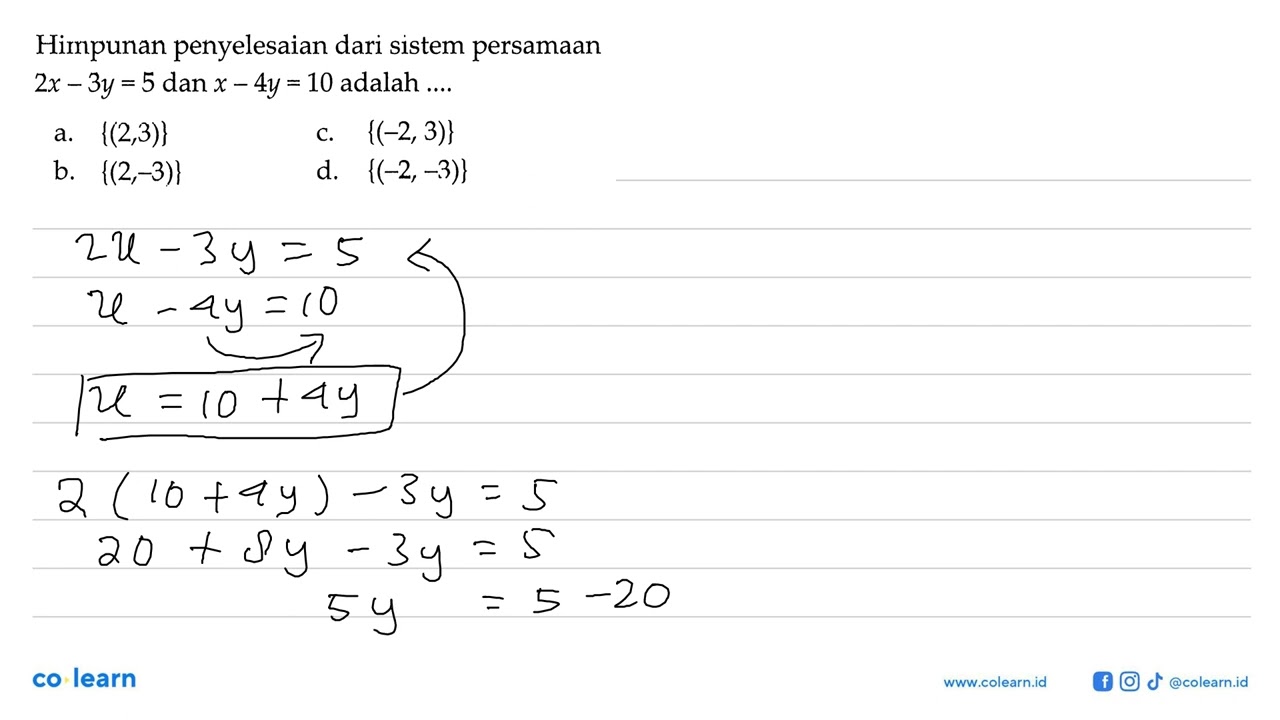 Himpunan penyelesaian dari sistem persamaan
2x – 3y = 5 dan x – 4y = 10 adalah ....
a. {(2,3)} c. {(–2, 3)}
b. {(2,–3)} d. {(–2, –3)}
2x - 3y = 5
x - 4y = 10
x = 10 + 4y
2 (10 + 4y) - 3y = 5
20 + 8y - 3y = 5
5y = 5 - 20
co learn
www.colearn.id @colearn.id